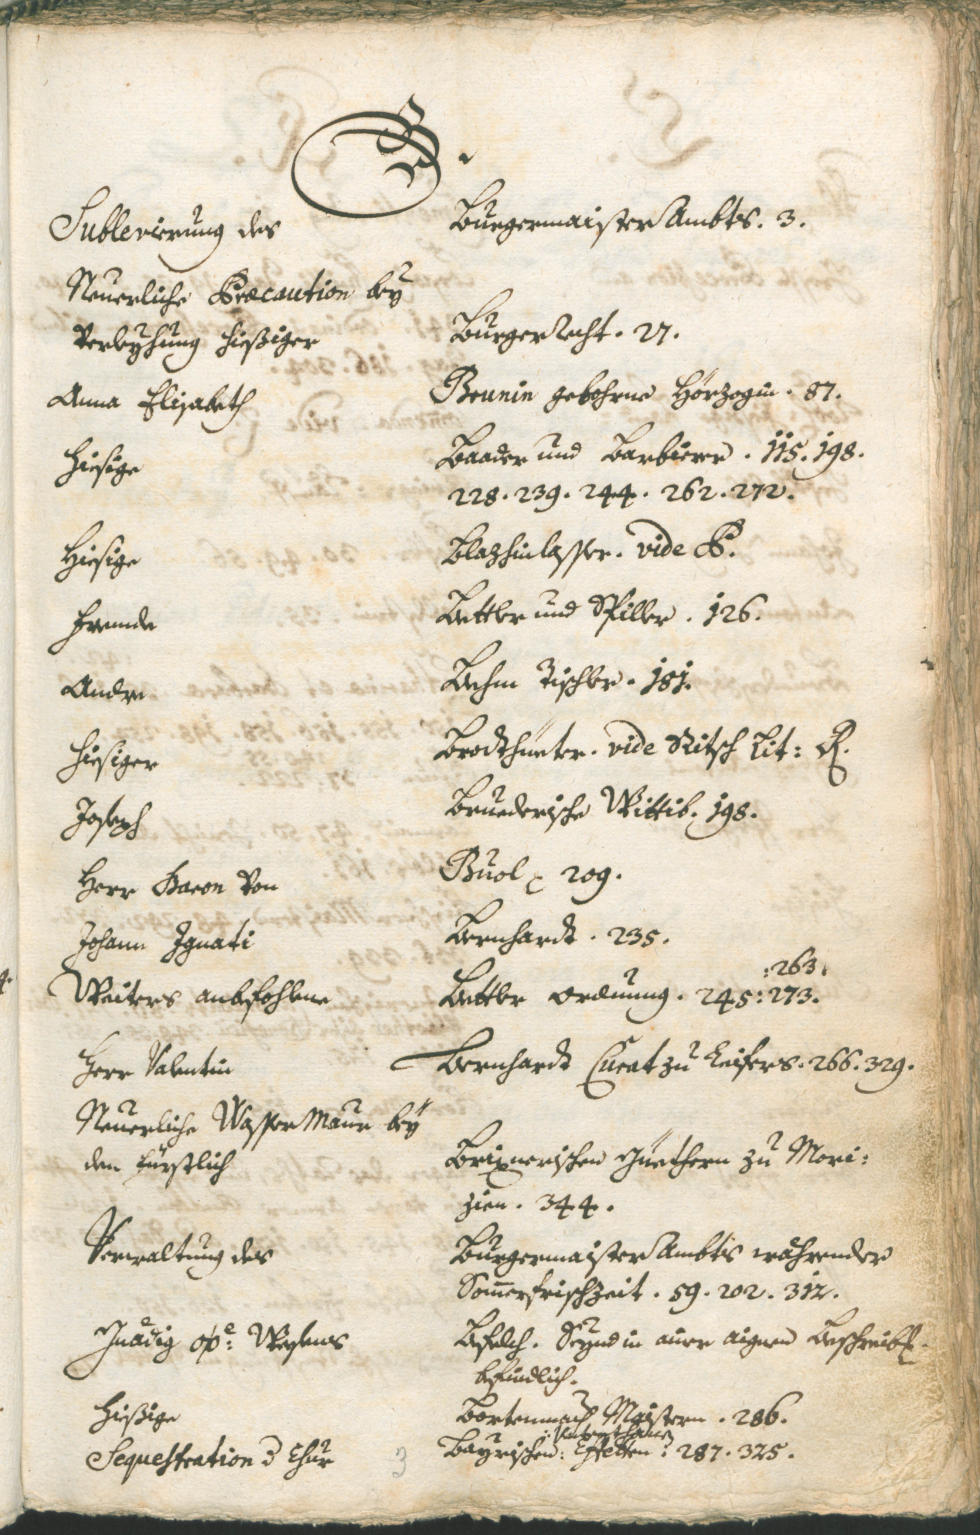 B.
Sublevierung des Burgermaister Ambts. 3.
Neuerliche Præcaution bey
Verleyhung hießiger Burgerrecht. 27.
Anna Elisabeth Brunin gebohrne Hörzogin. 87.
Hiesige Baader und Barbierer. 115. 198.
228. 239. 244. 262. 272.
Hiesige Blazhinlasser. vide P.
Frembde Bettler und Spiller. 126.
Andre Behm Tischler. 181.
Hiesiger Brodthüeter. vide Ritsch Lit: R.
Joseph Bruederische Wittib. 198.
Herr Baron von Buol 209.
Johann Ignati Bernhardt. 235.
:263:
Weiters anbefohlene Bettler ordnung. 245: 273.
Herr Valentin Bernhardt Curat zu Leifers. 266. 329.
Neuerliche Wasser Maur bey
den fürstlich Brixnerischen Güethern zu Mori:
zien. 344.
Verwaltung des Burgermaister Ambts währender
Sommerfrischzeit. 59. 202. 312.
Gnädig Wesens Befelch. Seynd in ainer aignen
befindlich.
Hießige Bortenmach Maistern. 286.
Sequestration Chur Bayrischen: Effecten: 287. 325.
3